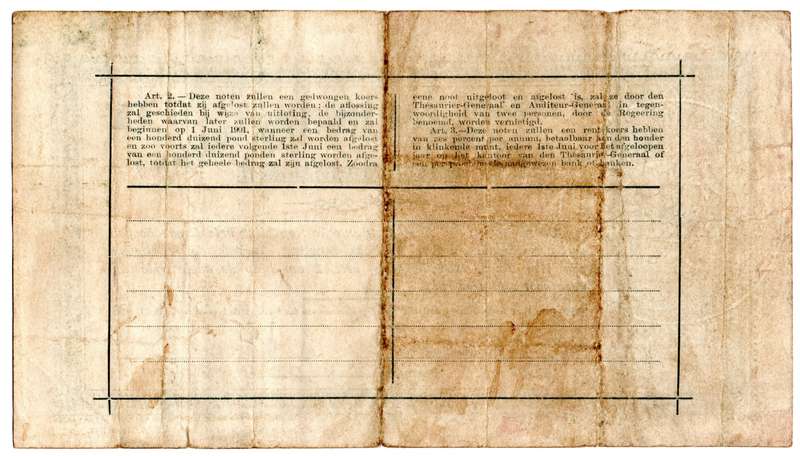 Art. 2. — Deze noten zullen een gedwongen koers
hebben totdat zij afgelost zullen worden: de aflossing
zal geschieden bij wijze van uitloting, de bijzonder-
heden waarvan later zullen worden bepaald en zal
beginnen op 1 Juni 1901, wanneer een bedrag van
een honderd duizend pond sterling zal worden afgelost
en zoo voorts zal iedere volgende 1ste Juni een bedrag
van een honderd duizend ponden sterling worden afge-
lost, totdat het geheele bedrag zal zijn afgelost. Zoodra
eene noot uitgeloot en afgelost is, zal ze door den
Thesaurier-Generaal en Auditeur-Generaal in tegen-
woordigheid van twee personen, door de Regeering
benoemd, worden vernietigd.
Art. 3. — Deze noten zullen een rentekoers hebben
van zes percent per annum, betaalbaar aan den houder
in klinkende munt, iedere 1ste Juni voor het afgeloopen
jaar op het kantoor van den Thesaurier-Generaal of
aangewezen bank of banken.